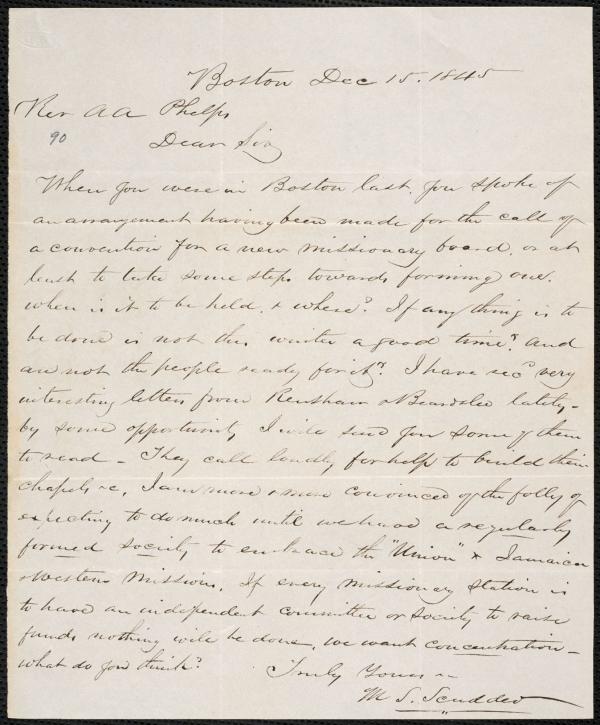 Boston Dec 15. 1845
Rev A A Phelps
90
Dear Sir
When you were in Boston last, you spoke of
an arrangement having been made for the call of
a convention for a new missionary board, or at
least to take some steps towards forming one.
when is it to be held, & where? If any thing is to
be done is not this winter a good time? and
are not the people ready for it? I have recd very
interesting letters from Renshaw & Beardslee lately -
by some opportunity I will send you some of them
to read - They call loudly for help to build their
chapels &c, I am more & more convinced of the folly of
expecting to do much until we have a regularly
formed society to embrace the "Union" & Jamaica
& Western Missions, If every missionary station is
to have an independent committee or society to raise
funds nothing will be done, we want concentration -
what do you think?
Truly Yours
M S. Scudder